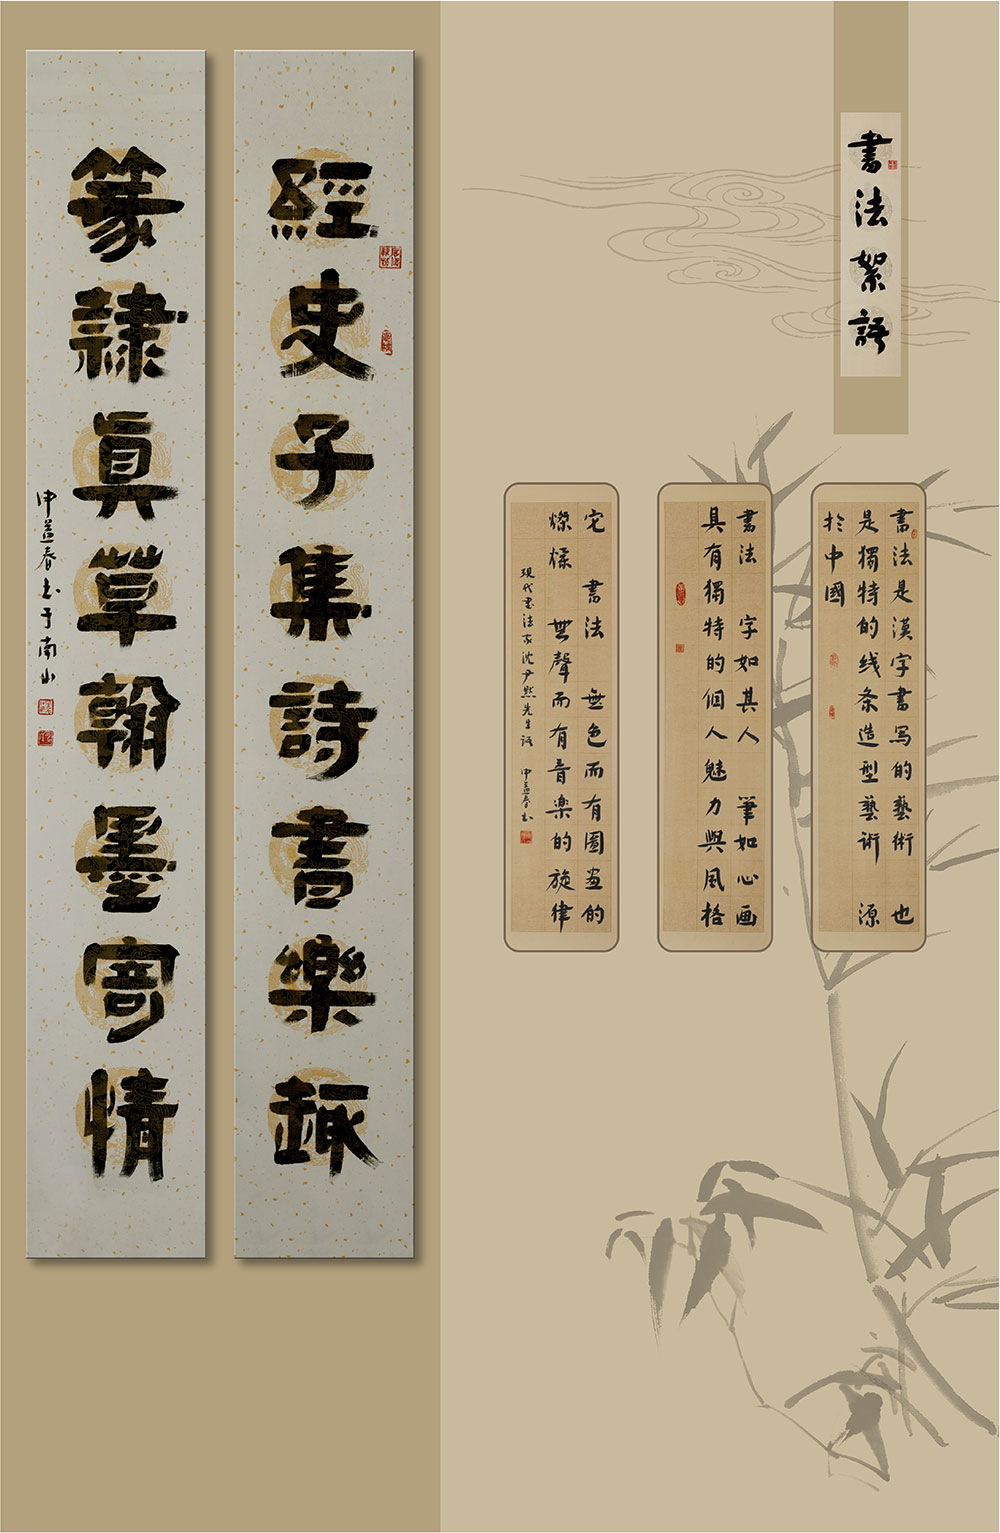 書法絮語
書法是漢字書写的藝術 也
是獨特的线条造型藝術 源
於中國
書法 字如其人 筆如心画
具有獨特的個人魅力與風格
它 書法 無色而有圖画的
燦爛 無聲而有音楽的旋律
現代書法家沈尹默先生語 申益春书
經史子集詩書樂
篆隸眞草翰墨寄情
申益春书于南山